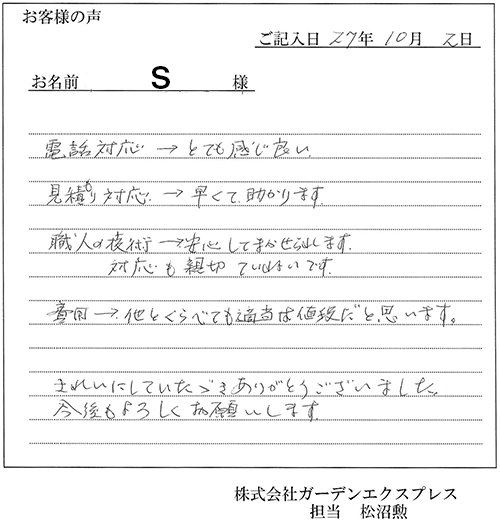 お客様の声
ご記入日 27年 10月 2日
お名前 S 様
電話対応 → とても感じ良い
見積もり対応 → 早くて助かります
職人の技術 → 安心してまかせられます。
対応も親切ていねいです。
費用 → 他とくらべても適当な値段だと思います。
きれいにしていただきありがとうございました。
今後もよろしくお願いします
株式会社ガーデンエクスプレス
担当 松沼勲